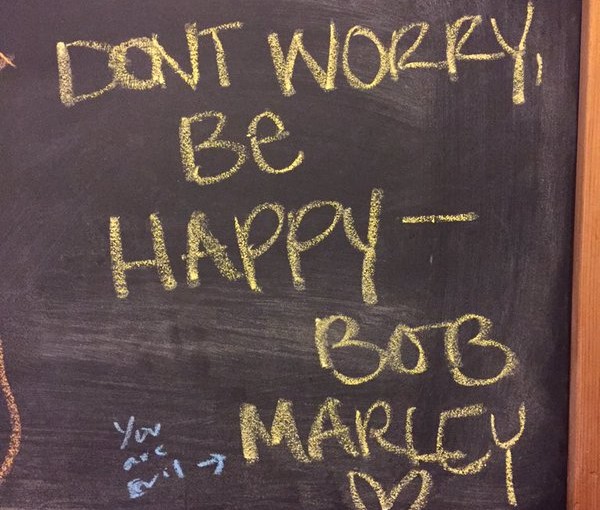 DONT WORRY,
Be
HAPPY —
BOB
MARLEY
You
are
Evil →